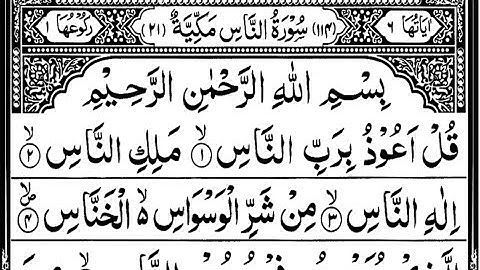 اٰيَاتُهَا ٦ (١١٤) سُوْرَةُ النَّاسِ مَكِّيَّةٌ (٢١) رُكُوْعُهَا ١
بِسْمِ اللّٰهِ الرَّحْمٰنِ الرَّحِيْمِ
قُلْ اَعُوْذُ بِرَبِّ النَّاسِ ۙ١ مَلِكِ النَّاسِ ۙ٢
اِلٰهِ النَّاسِ ۙ٣ مِنْ شَرِّ الْوَسْوَاسِ ۵ۙ الْخَنَّاسِ ۪ۙ٤